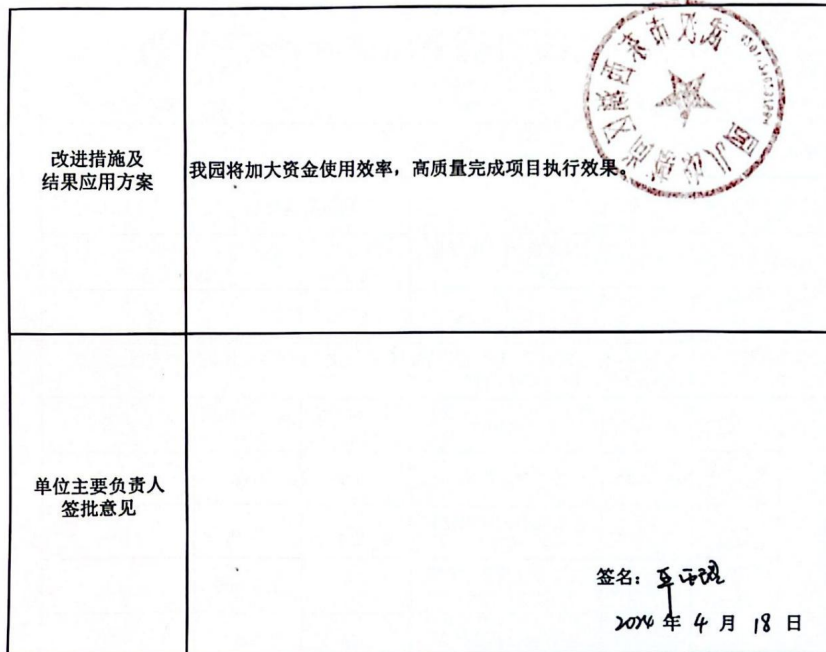 改进措施及
结果应用方案
我园将加大资金使用效率，高质量完成项目执行效果。
单位主要负责人
签批意见
签名：
2024 年 4 月 18 日